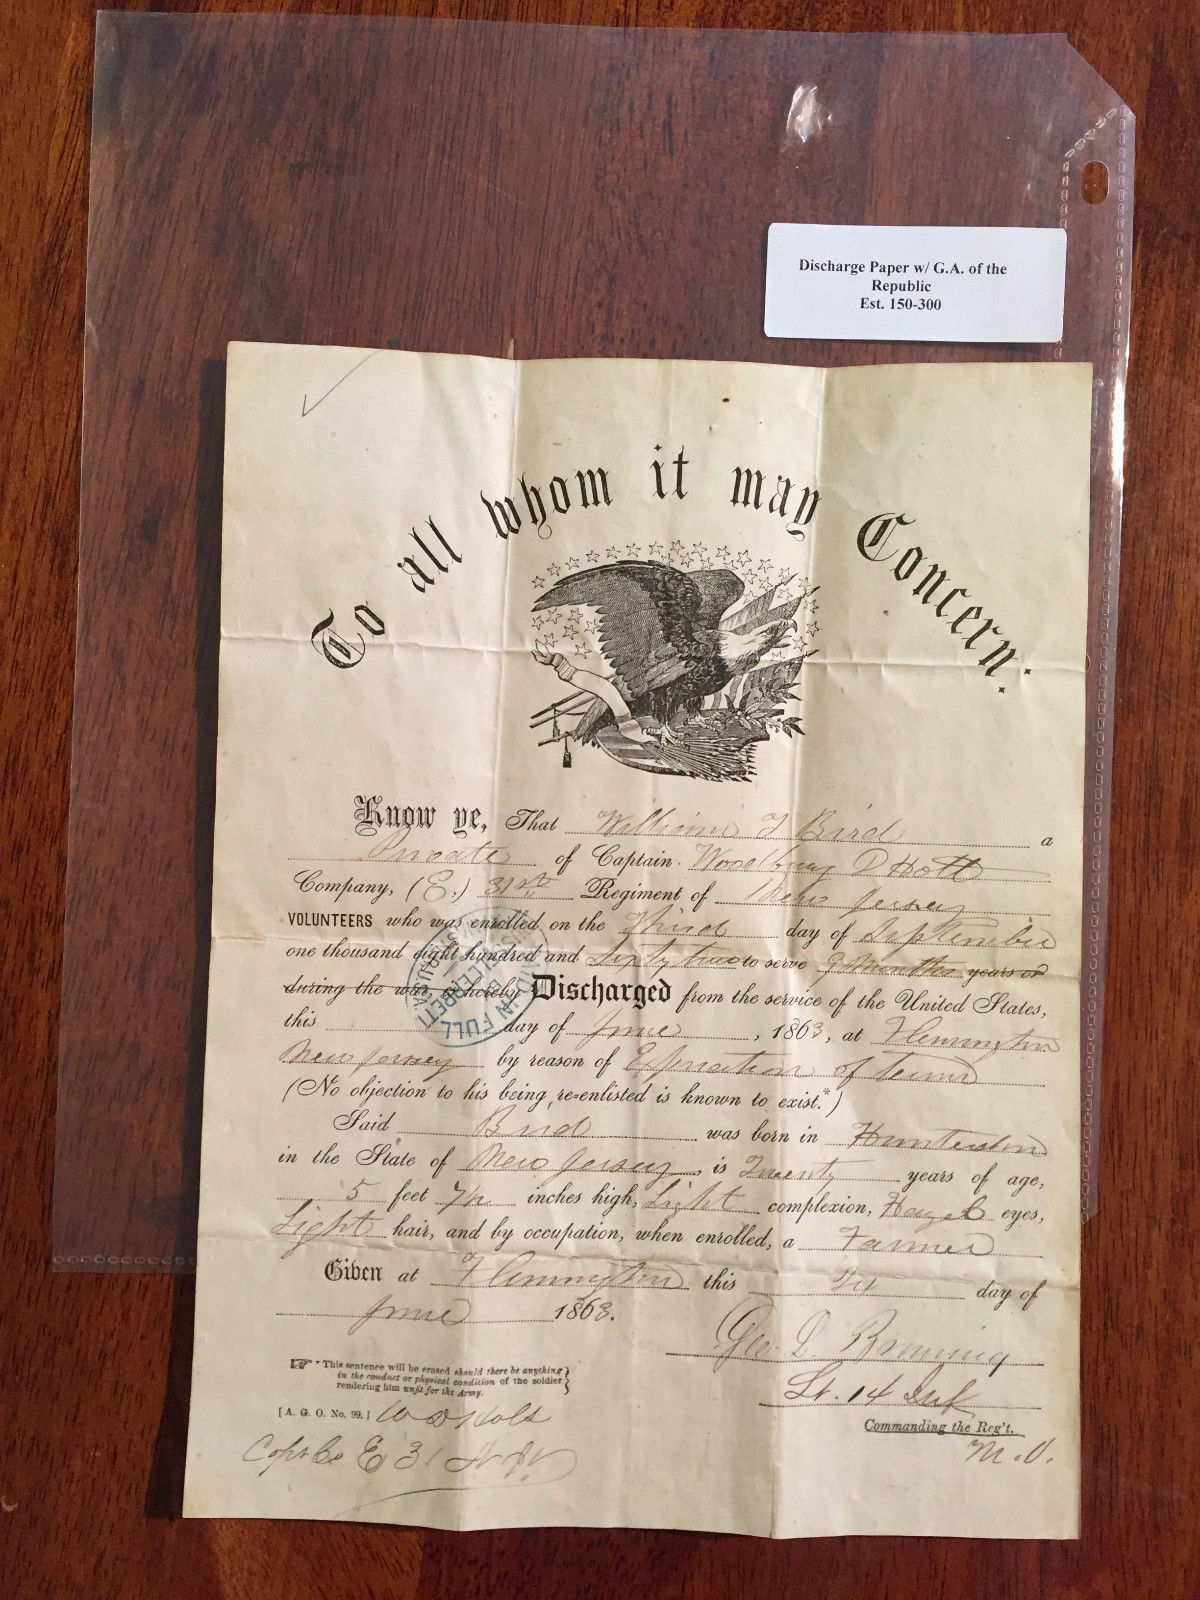 Discharge Paper w/ G.A. of the
Republic
Est. 150-300
To all whom it may Concern:
Know ye, That William J Bird a
Private of Captain Woodbury D Holt
Company, (E,) 31st Regiment of New Jersey
VOLUNTEERS who was enrolled on the Third day of September
one thousand eight hundred and Sixty two to serve 9 Months years or
during the war, is hereby Discharged from the service of the United States,
this day of June, 1863, at Flemington
New Jersey by reason of Expiration of term
(No objection to his being re-enlisted is known to exist.*)
Said Bird was born in Hunterdon
in the State of New Jersey, is Twenty years of age,
5 feet 7½ inches high, Light complexion, Hazel eyes,
Light hair, and by occupation, when enrolled, a Farmer
Given at Flemington this 24 day of
June 1863.
Geo. D.
Lt. 14 Inf
Commanding the Reg't.
M.O.
* This sentence will be erased should there be anything
in the conduct or physical condition of the soldier
rendering him unfit for the Army.
[A. G. O. No. 99.] W D Holt
Capt Co E 31
PAID IN FULL